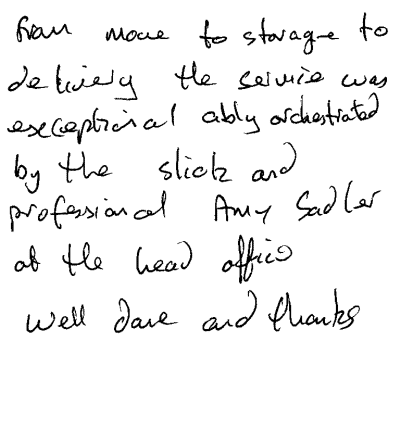 from move to storage to
delivery the service was
exceptional ably orchestrated
by the slick and
professional Amy Sadler
at the head office
well done and thanks